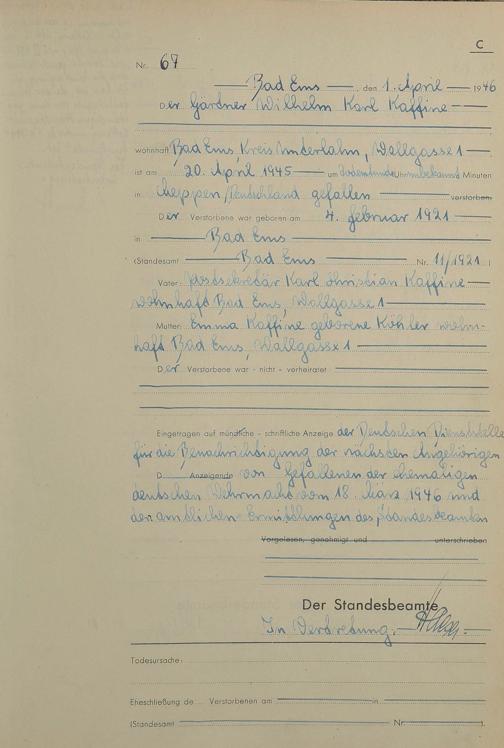 C
Nr. 67
Bad Ems, den 1. April 1946
Der Gärtner Wilhelm Karl Kaffine
wohnhaft Bad Ems, Kreis Unterlahn, Wallgasse 1
ist am 20. April 1945 um Todesstunde Uhr unbekannt Minuten
in /Deutschland gefallen verstorben.
Der Verstorbene war geboren am 4. Februar 1921
in Bad Ems
(Standesamt Bad Ems Nr. 11/1921)
Vater: Postsekretär Karl Christian Kaffine
wohnhaft Bad Ems, Wallgasse 1
Mutter: Emma Kaffine geborene Köhler wohn-
haft Bad Ems, Wallgasse 1
Der Verstorbene war - nicht - verheiratet
Eingetragen auf mündliche - schriftliche Anzeige der Deutschen Dienststelle
für die Benachrichtigung der nächsten Angehörigen
D Anzeigende von Gefallenen der ehemaligen
deutschen Wehrmacht vom 18. März 1946 und
den amtlichen Ermittlungen des Standesbeamten
Vorgelesen, genehmigt und unterschrieben
Der Standesbeamte
In Vertretung.
Todesursache:
Eheschließung de Verstorbenen am in
(Standesamt Nr. ).